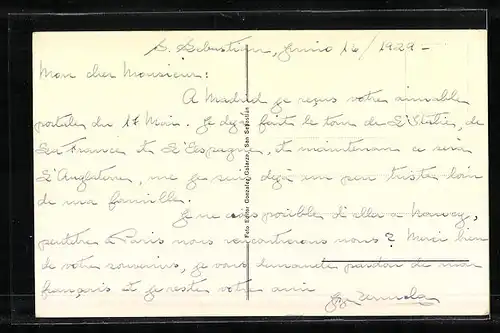 S. Sebastian, Junio 16/1929-
Mon cher Monsieur:
A Madrid je reçus votre aimable
postale du 17 Mai. Je dejá faite le tour de L'Italie, de
La France et L'Espagne, et maintenant ce sera
L'Angleterre, me je suis dejá un peu triste loin
de ma famille.
Je ne crois posible d'aller a Nancy,
peutetre a Paris nous rencontrerons nous? Merci bien
de votre souvenirs, je vous demande pardon de mon
français et je reste votre ami
Foto Editor Gonzalez Galarza, San Sebastián